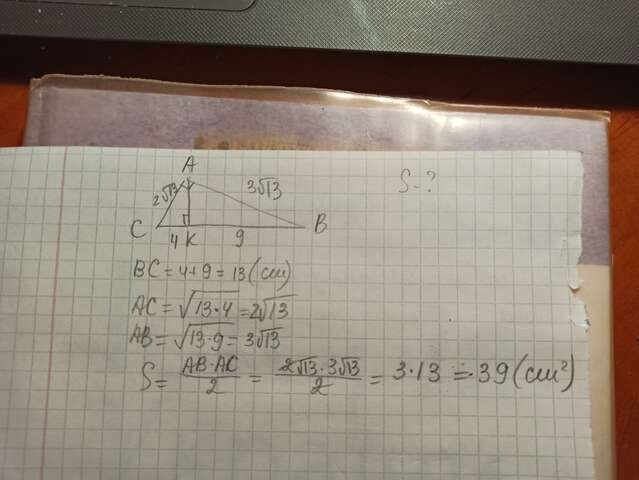 A
S-?
2√13
3√13
C
4
K
9
B
BC = 4+9 = 13 (см)
AC = √13·4 = 2√13
AB = √13·9 = 3√13
S = AB·AC/2 = 2√13·3√13/2 = 3·13 = 39 (см²)